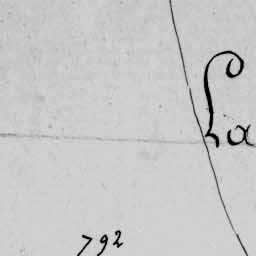 La
792